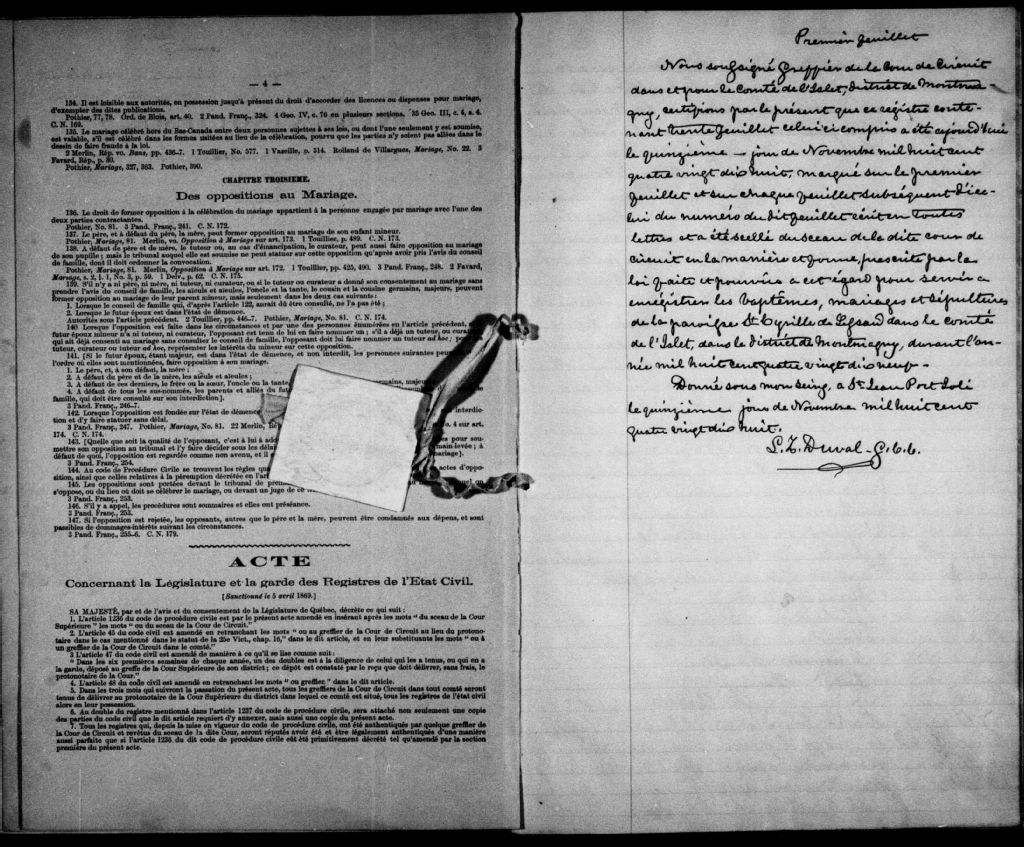 — 4 —
134. Il est loisible aux autorités, en possession jusqu'à présent du droit d'accorder des licences ou dispenses pour mariage,
d'exempter des dites publications.
Pothier, 77, 78. Ord. de Blois, art. 40. 2 Pand. Franç., 324. 4 Geo. IV, c. 76 en plusieurs sections. 35 Geo. III, c. 4, s. 4.
C. N. 169.
135. Le mariage célébré hors du Bas-Canada entre deux personnes sujettes à ses lois, ou dont l'une seulement y est soumise,
est valable, s'il est célébré dans les formes usitées au lieu de la célébration, pourvu que les parties n'y soient pas allées dans le
dessin de faire fraude à la loi.
2 Merlin, Rép. vo. Bans, pp. 436-7. 1 Touillier, No. 577. 1 Vazeille, p. 314. Rolland de Villargues, Mariage, No. 22. 3
Favard, Rép., p. 30.
Pothier, Mariage, 327, 363. Pothier, 390.
CHAPITRE TROISIEME.
Des oppositions au Mariage.
136. Le droit de former opposition à la célébration du mariage appartient à la personne engagée par mariage avec l'une des
deux parties contractantes.
Pothier, No. 81. 3 Pand. Franç., 241. C. N. 172.
137. Le père, et à défaut du père, la mère, peut former opposition au mariage de son enfant mineur.
Pothier, Mariage, 81. Merlin, vo. Opposition à Mariage sur art. 173. 1 Touillier, p. 489. C. N. 173.
138. A défaut de père et de mère, le tuteur ou, au cas d'émancipation, le curateur, peut aussi faire opposition au mariage
de son pupille; mais le tribunal auquel elle est soumise ne peut statuer sur cette opposition qu'après avoir pris l'avis du conseil
de famille, dont il doit ordonner la convocation.
Pothier, Mariage, 81. Merlin, Opposition à Mariage sur art. 172. 1 Touillier, pp. 425, 490. 3 Pand. Franç., 248. 2 Favard,
Mariage, s. 2, § 1, No. 3, p. 59. 1 Delv., p. 62. C. N. 175.
139. S'il n'y a ni père, ni mère, ni tuteur, ni curateur, ou si le tuteur ou curateur a donné son consentement au mariage sans
prendre l'avis du conseil de famille, les aïeuls et aïeules, l'oncle et la tante, le cousin et la cousine germains, majeurs, peuvent
former opposition au mariage de leur parent mineur, mais seulement dans les deux cas suivants:
1. Lorsque le conseil de famille qui, d'après l'article 122, aurait dû être consulté, ne l'a pas été;
2. Lorsque le futur époux est dans l'état de démence.
Autorités sous l'article précédent. 2 Touillier, pp. 446-7. Pothier, Mariage, No. 81. C. N. 174.
140 Lorsque l'opposition est faite dans les circonstances et par une des personnes énumérées en l'article précédent,
futur époux mineur n'a ni tuteur, ni curateur, l'opposant est tenu de lui en faire nommer un; s'il a déjà un tuteur, ou
qui ait déjà consenti au mariage sans consulter le conseil de famille, l'opposant doit lui faire nommer un tuteur ad hoc;
tuteur, curateur ou tuteur ad hoc, représenter les intérêts du mineur sur cette opposition.
141. [Si le futur époux, étant majeur, est dans l'état de démence, et non interdit, les personnes suivantes
l'ordre où elles sont mentionnées, faire opposition à son mariage.
1. Le père, et, à son défaut, la mère;
2. A défaut du père et de la mère, les aïeuls et aïeules;
3. A défaut de ces derniers, le frère ou la sœur, l'oncle ou la tante
4. A défaut de tous les sus-nommés, les parents et alliés du
famille, qui doit être consulté sur son interdiction].
3 Pand. Franç., 246-7.
142. Lorsque l'opposition est fondée sur l'état de démence
tion et d'y faire statuer sans délai.
3 Pand. Franç., 247. Pothier, Mariage, No. 81. 22 Merlin, o. 4 sur art.
174. C. N. 174.
143. [Quelle que soit la qualité de l'opposant, c'est à lui à
mettre son opposition au tribunal et l'y faire décider sous les
défaut de quoi, l'opposition est regardée comme non avenue, et
3 Pand. Franç., 254.
144. Au code de Procédure Civile se trouvent les règles
sition, ainsi que celles relatives à la péremption décrétée en
145. Les oppositions sont portées devant le tribunal de
s'oppose, ou du lieu où doit se célébrer le mariage, ou devant un juge de ce
3 Pand. Franç., 253.
146. S'il y a appel, les procédures sont sommaires et elles ont préséance.
3 Pand. Franç., 253.
147. Si l'opposition est rejetée, les opposants, autres que le père et la mère, peuvent être condamnés aux dépens, et sont
passibles de dommages-intérêts suivant les circonstances.
3 Pand. Franç., 255-6. C. N. 179.
ACTE
Concernant la Législature et la garde des Registres de l'Etat Civil.
[Sanctionné le 5 avril 1869.]
SA MAJESTÉ, par et de l'avis et du consentement de la Législature de Québec, décrète ce qui suit:
1. L'article 1236 du code de procédure civile est par le présent acte amendé en insérant après les mots " du sceau de la Cour
Supérieure " les mots " ou du sceau de la Cour de Circuit."
2. L'article 45 du code civil est amendé en retranchant les mots " ou au greffier de la Cour de Circuit au lieu du protono-
taire dans le cas mentionné dans le statut de la 25e Vict., chap. 16," dans le dit article, et en leur substituant les mots " ou à
un greffier de la Cour de Circuit dans le comté."
3 L'article 47 du code civil est amendé de manière à ce qu'il se lise comme suit:
" Dans les six premières semaines de chaque année, un des doubles est à la diligence de celui qui les a tenus, ou qui en a
la garde, déposé au greffe de la Cour Supérieure de son district; ce dépôt est constaté par le reçu que doit délivrer, sans frais, le
protonotaire de la Cour."
4. L'article 48 du code civil est amendé en retranchant les mots " ou greffier " dans le dit article.
5. Dans les trois mois qui suivront la passation du présent acte, tous les greffiers de la Cour de Circuit dans tout comté seront
tenus de délivrer au protonotaire de la Cour Supérieure du district dans lequel ce comté est situé, tous les registres de l'état civil
alors en leur possession.
6. Au double du registre mentionné dans l'article 1237 du code de procédure civile, sera attaché non seulement une copie
des parties du code civil que le dit article requiert d'y annexer, mais aussi une copie du présent acte.
7. Tous les registres qui, depuis la mise en vigueur du code de procédure civile, ont été authentiqués par quelque greffier de
la Cour de Circuit et revêtus du sceau de la dite Cour, seront réputés avoir été et être légalement authentiqués d'une manière
aussi parfaite que si l'article 1236 du dit code de procédure civile eût été primitivement décrété tel qu'amendé par la section
première du présent acte.
Premier feuillet
Nous soussigné Greffier de la Cour de Circuit
dans et pour le Comté de l'Islet, district de Montma-
gny, certifions par le présent que ce registre conte-
nant trente feuillet celui ci compris a été aujourd'hui
le quinzième — jour de Novembre mil huit cent
quatre vingt dix huit, marqué sur le premier
feuillet et sur chaque feuillet subséquent d'ice-
lui du numéro du dit feuillet écrit en toutes
lettres et a été scellé du sceau de la dite cour de
circuit en la manière et forme, prescrite par la
loi faite et pourvue a cet égard pour servir a
enregistrer les baptêmes, mariages et sépultures
de la paroisse St. Cyrille de Lessard dans le comté
de l'Islet, dans le district de Montmagny, durant l'an-
née mil huit cent quatre vingt dix neuf. -
Donné sous mon seing, a St. Jean Port Joli
le quinzième jour de Novembre mil huit cent
quatre vingt dix huit.
L. Z. Duval - G. C. C.